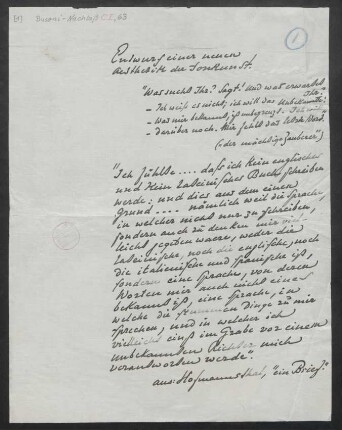 [1] Busoni-Nachlaß C I, 93
1
Entwurf einer neuen
Aesthetik der Tonkunst.
"Was sucht Ihr? Sagt! Und was erwartet Ihr?"
- Ich weiß es nicht; ich will das Unbekannte!
- Was mir bekannt, ist unbegrenzt. Ich will
- darüber noch. Mir fehlt das letzte Wort.
(der mächtige Zauberer")
"Ich fühlte .... daß ich kein englisches
und kein lateinisches Buch schreiben
werde: und dies aus dem einen
Grund .... nämlich weil die Sprache
in welcher nicht nur zu schreiben,
sondern auch zu denken mir
leicht gegeben waere, weder die
lateinische, noch die englische, noch
die italienische und spanische ist,
sondern eine Sprache, von deren
Worten mir auch nicht eines
bekannt ist, eine Sprache, in
welche die stummen Dinge zu mir
sprechen, und in welcher ich
vielleicht einst im Grabe vor einem
unbekannten Richter mich
verantworten werde".
aus: Hofmannsthal, "ein Brief."